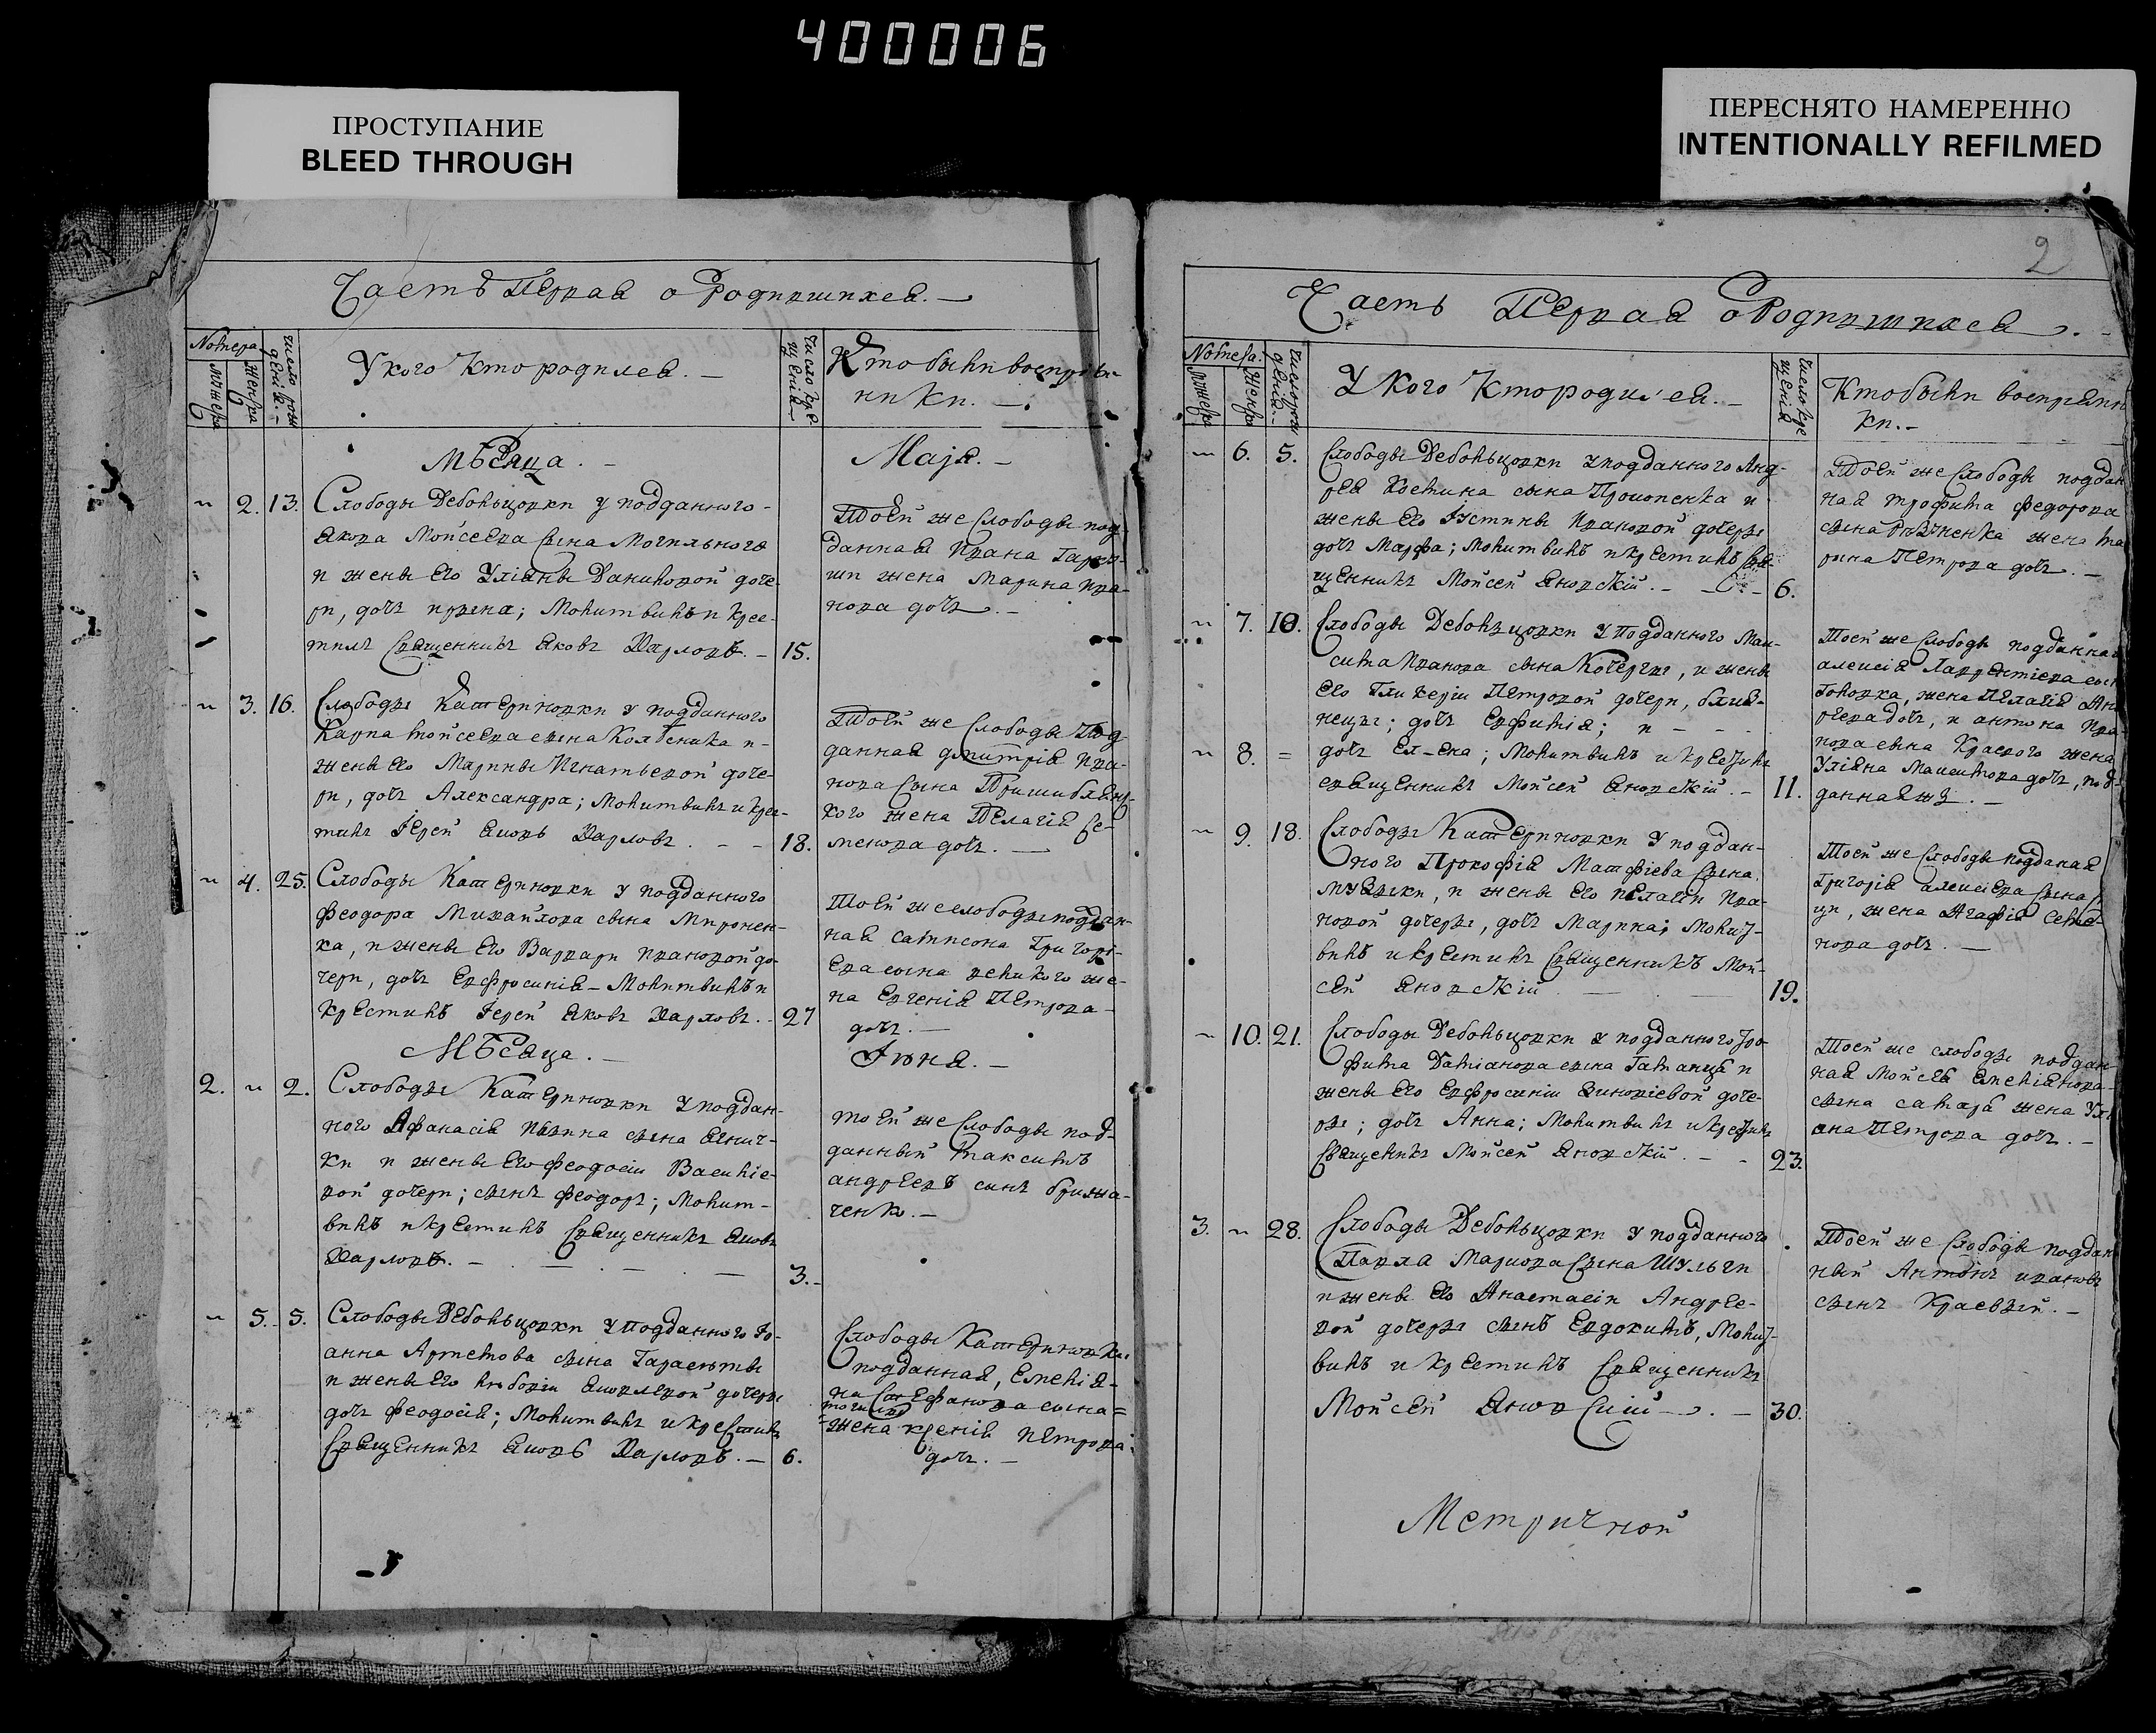 400006
ПРОСТУПАНИЕ
BLEED THROUGH
ПЕРЕСНЯТО НАМЕРЕННО
INTENTIONALLY REFILMED
Часть Первая о Родившихся. —
Номера
мужеска
женска
число рождения
У кого кто родился. —
число крещения
Кто были воспрыем
ники. —
Мѣсяца. —
Маія. —
2. 13. Слободы Дебольцовки у подданного
Якова Мойсеева сына Могильного
и жены его Уліяны Даниловой доче-
ри, дочь
Молитвилъ и крес-
тилъ Священникъ Яковъ Харловъ. — 15.
Тоей же Слободы под-
данная Ивана
жена Марина Ива-
нова дочь. —
3. 16. Слободы Катериновки у подданного
Карпа Мойсеева сына Колѣсника и
жены его Марины Игнатьевой доче-
ри, дочь Александра; Молитвилъ и крес-
тилъ Іерей Яковъ Харловъ. — 18.
Тоей же Слободы под
данная Дмитрія Ива-
нова сына
жена Пелагія Се-
менова дочь. —
4. 25. Слободы Катериновки у подданного
Феодора Михайлова сына Миронен-
ка, и жены его Варвары Ивановой до-
чери, дочь Евфросинія — Молитвилъ и
крестилъ Іерей Яковъ Харловъ. — 27
Тоей же слободы поддан-
ная Сампсона Григорі-
ева сына великого же-
на Евгенія Петрова
дочь. —
Мѣсяца. —
Іюня. —
2. 2. Слободы Катериновки у поддан-
ного Афанасія
сына
ки и жены его Феодосіи Василіе-
вой дочери; сынъ Феодоръ; Молит-
вилъ и крестилъ Священникъ Яковъ
Харловъ. — 3. —
тоей же Слободы под-
данный Максимъ
Андреевъ сынъ
ченко. —
5. 5. Слободы Дебольцовки у подданного Іо-
анна Артемова сына
и жены его Любови Яковлевой дочери
дочь Феодосія; Молитвилъ и крестилъ
Священникъ Яковъ Харловъ. — 6.
Слободы Катериновки
подданная, Емелія-
на Стефанова сына =
жена Ксенія Петрова
дочь. —
2
Часть Первая о Родившихся. —
Номера.
мужеска
женска
число рождения
У кого кто родился. —
число крещения
Кто были воспрыемни
ки. —
6. 5. Слободы Дебольцовки у подданного Анд-
рея Костина сына Прокопенка и
жены его Іустины Ивановой дочери
дочь Марфа; Молитвилъ и крестилъ Свя-
щенникъ Мойсей Яновскій. — 6.
Тоей же Слободы поддан
ная Трофима Федорова
сына
жена Ма
рина Петрова дочь. —
7. 10. Слободы Дебольцовки у подданного Мак-
сима Иванова сына Кочерги, и жены
его Гликеріи Петровой дочери, близ-
нецы; дочь Евфимія; и —
8. = дочь Елена; Молитвилъ и крестилъ
священникъ Мойсей Яновскій. — 11.
Тоей же Слободы подданная
Алексія Лаврентіева сына
Говорка, жена Пелагія Анд
реева дочь, и Антона Ива-
нова сына Красного жена
Уліяна Максимова дочь, под-
данная ж. —
9. 18. Слободы Катериновки у поддан-
ного Прокофія Матфіева сына
и жены его Пелагіи Ива-
новой дочери, дочь Марина; Молит-
вилъ и крестилъ Священникъ Мой-
сей Яновскій — 19.
Тоей же Слободы подданая
Григорія Алексеева сына
жена Агафія Семе-
нова дочь. —
10. 21. Слободы Дебольцовки у подданного Тро
фима Даміанова сына и
жены его Евфросиніи
доче-
ры; дочь Анна; Молитвилъ и крестилъ
Священикъ Мойсей Яновскій. — 23.
Тоей же слободы поддан
ная Мойсея Емеліянова
сына
жена Ули
яна Петрова дочь. —
3. 28. Слободы Дебольцовки у подданного
Павла Маркова сына Шульги
и жены его Анастасіи Андрее-
вой дочери сынъ Евдокимъ, Молит-
вилъ и крестилъ Священникъ
Мойсей Яновскій — 30.
Тоей же Слободы поддан
ный Антонъ Ивановъ
сынъ Красный. —
Метричной